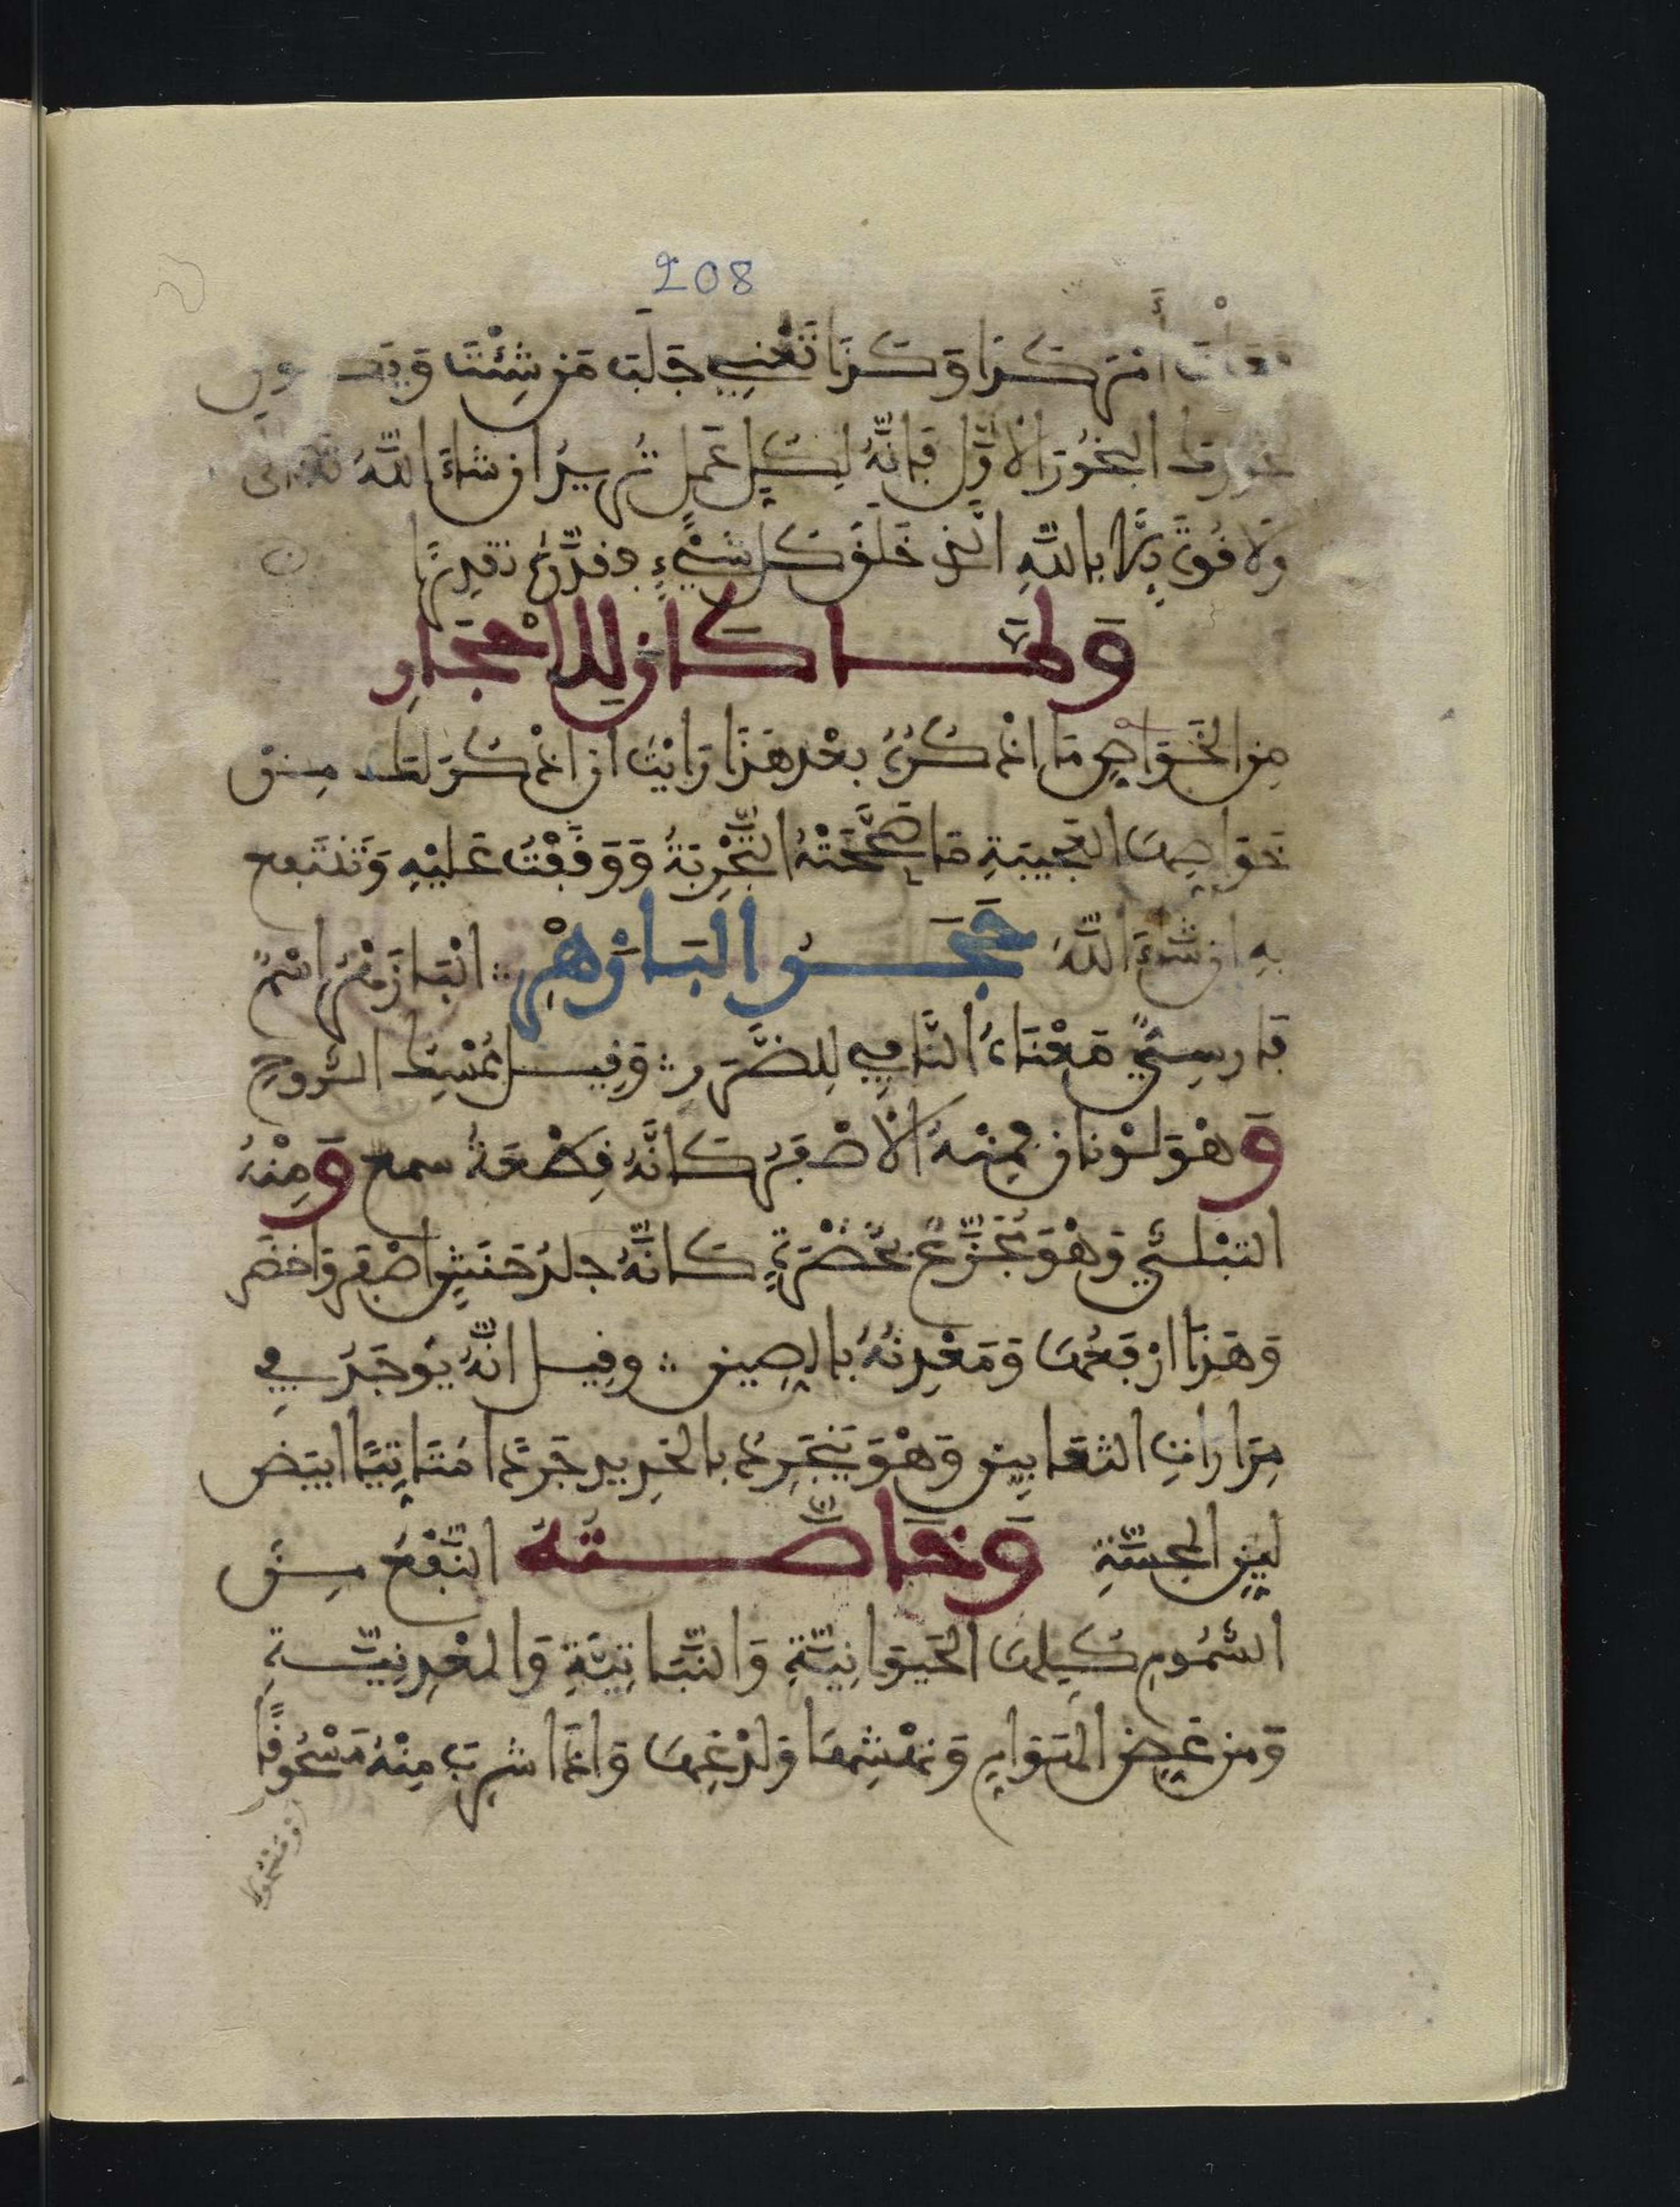 208
أمر كذا وكذا تعني جلب من شئت ويكون
بخورك البخور الأول فإنه لكل عمل تريد ان شاء الله تعالى
ولا قوة إلا بالله الذي خلق كل شيء وقدره تقديرا
ولما كان للاحجار
من الخواص ما اذكره بعد هذا رايت ان اذكر لك من
خواصها العجيبة ما صححته التجربة ووقفت عليه وتنتفع
به ان شاء الله حجر البازهر :: البازهر اسم
فارسي معناه النافي للضرر :: وقيل ممسك الروح
وهو لونان فمنه الاصفر كانه قطعة شمع ومنه
التبلسي وهو مجزع بخضرة كانه جلد حنش اصفر واخضر
وهذا ارفعها ومعدنه بالصين :: وقيل انه يوجد في
مرارات الثعابين وهو ينجرد بالحديد جردا متاتيا ابيض
لين المجسة وخاصته النفع من
السموم كلها الحيوانية والنباتية والمعدنية
ومن عض الهوام ونهشها ولدغها واذا شرب منه مسحوقا